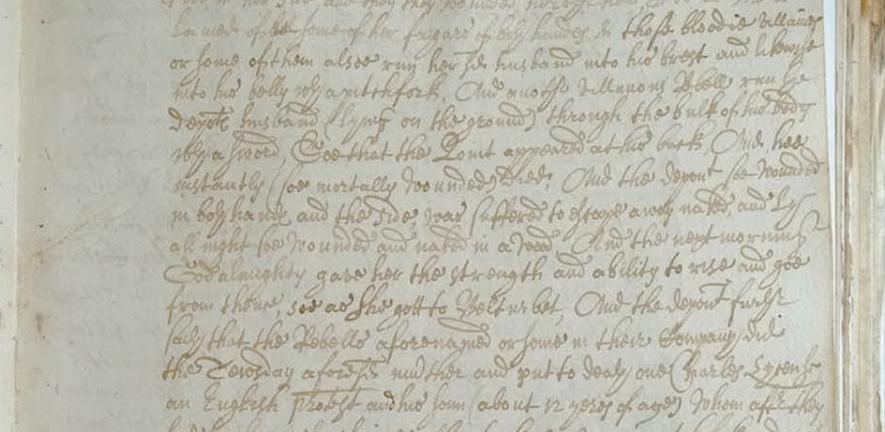 some of her fingars of both handes & those bloodie villaines
or some of them alsoe run her sd husband into his brest and likewise
into his belly wth a pitchfork, And another villanous Rebell run the
depots husband (lying on the ground) through the bulk of his body
wth a sword, Soe that the Point appeared at his back, And hee
instantly (soe mortally wounded) died: And the depont soe wounded
in both hands and the side, was suffered to escape away naked, and Ly
all night soe wounded and naked in a And the next morning
God almighty gave her the strength and ability to rise and goe
from thence, soe as she gott to Belturbet, And the depont further
saith that the Rebells aforenamed or some in their Company did
the Tewsday aforesd murther and put to death one Charles
an English protest and his sonn (about 12 yeres of age) whom after they